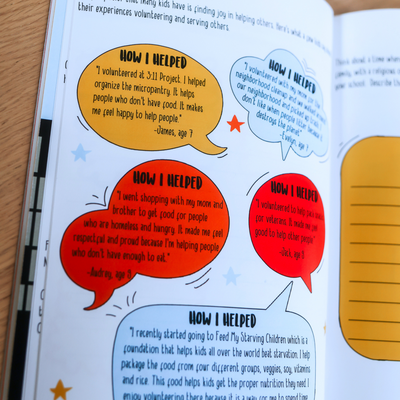 that many kids have is finding joy in helping others. Here's what a few kids
their experiences volunteering and serving others.
HOW I HELPED
"I volunteered at 3:11 Project. I helped
organize the micropantry. It helps
people who don't have food. It makes
me feel happy to help people."
-James, age 7
HOW I HELPED
"I volunteered with my mom
neighborhood cleanup, and we walked
our neighborhood and picked up
don't like when people litter because it
destroys the planet."
-Evelyn, age 7
HOW I HELPED
"I went shopping with my mom and
brother to get food for people
who are homeless and hungry. It made me feel
respectful and proud because I'm helping people
who don't have enough to eat."
-Audrey, age 8
HOW I HELPED
"I volunteered to help
for veterans. It made me feel
good to help other people."
HOW I HELPED
"I recently started going to Feed My Starving Children which is a
foundation that helps kids all over the world beat starvation. I help
package the food from four different groups, veggies, soy, vitamins
and rice. This food helps kids get the proper nutrition they need. I
enjoy volunteering there because it is a way for me to spend time
about a time when
family, with a religious
your school. Describe